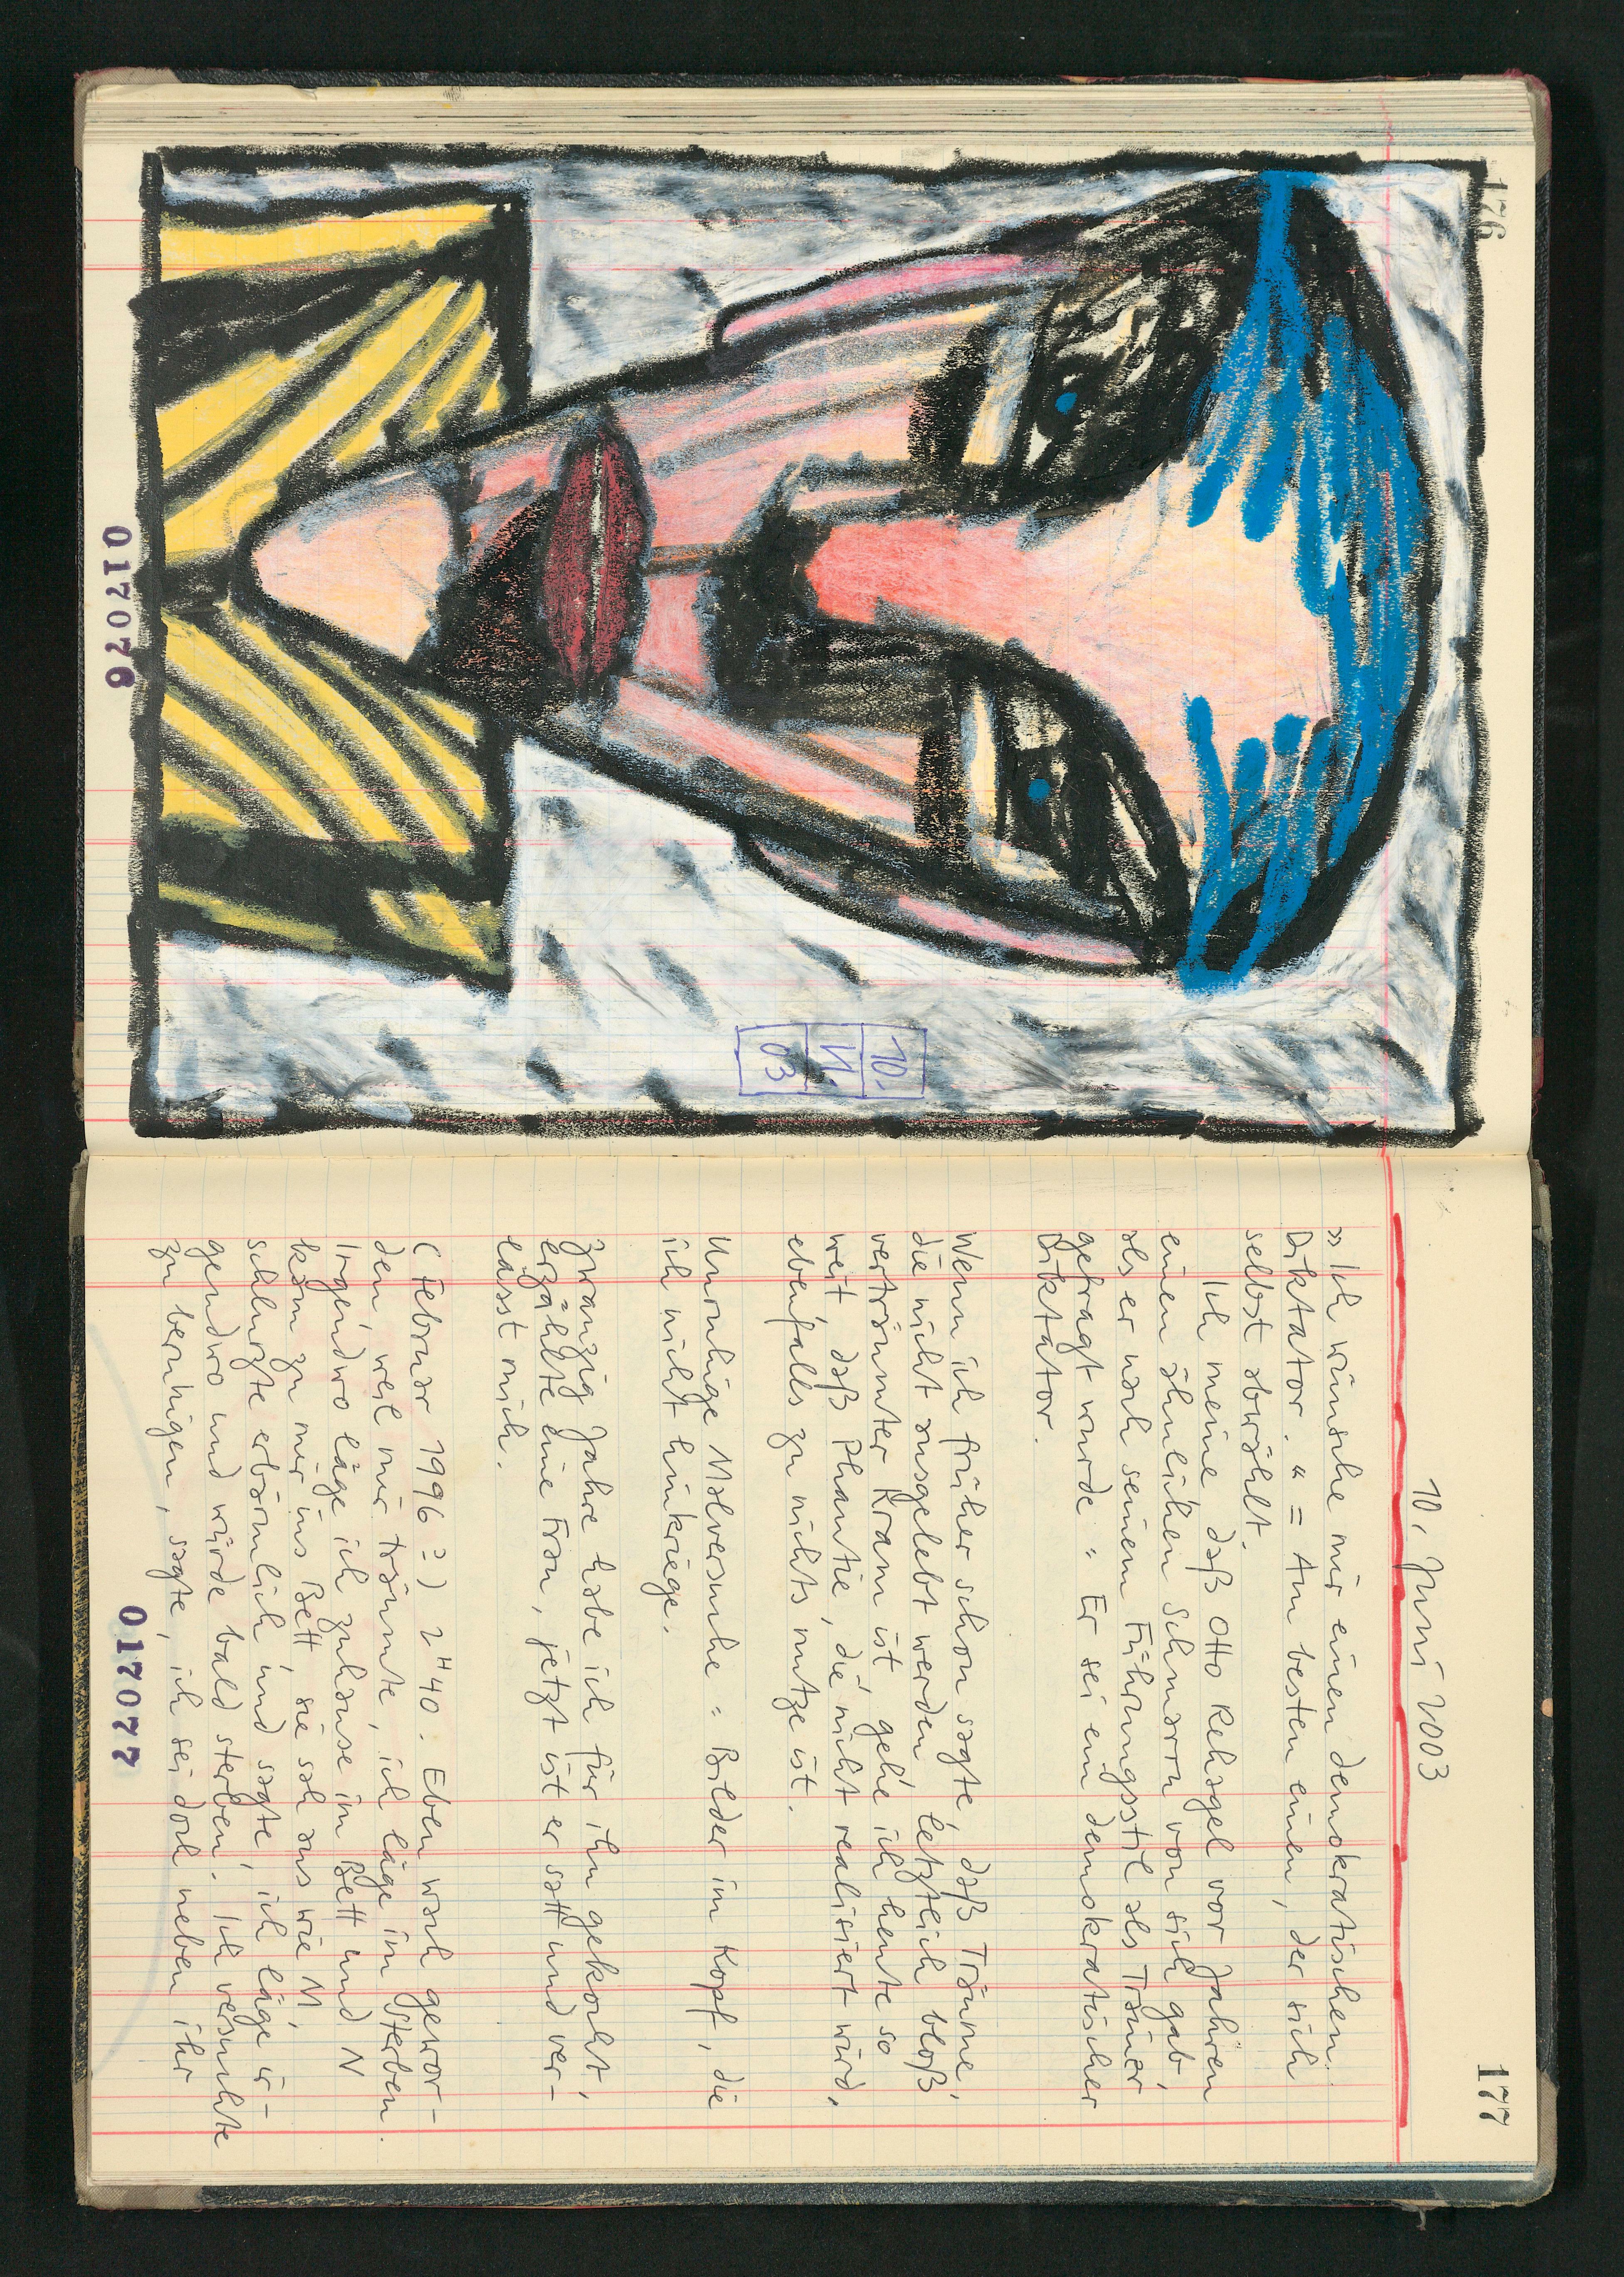 176
10.
VI.
03
017076
177
10. Juni 2003
»Ich wünsche mir einen demokratischen
Diktator.« = Am besten einen, der sich
selbst abwählt.
Ich meine, daß Otto Rehagel vor Jahren
einen ähnlichen Schmarrn von sich gab,
als er nach seinem Führungsstil als Trainer
gefragt wurde: Er sei ein demokratischer
Diktator.
Wenn ich früher schon sagte, daß Träume,
die nicht ausgelebt werden, letztlich bloß
verträumter Kram ist, gehe ich heute so
weit, daß Phantie, die nicht realisiert wird,
ebenfalls zu nichts nutze ist.
Unruhige Malversuche: Bilder im Kopf, die
ich nicht hinkriege.
Zwanzig Jahre habe ich für ihn gekocht,
erzählte eine Frau, jetzt ist er satt und ver-
lässt mich.
(Februar 1996:) 2 H 40. Eben wach gewor-
den, weil mir träumte, ich läge im Sterben.
Irgendwo läge ich zuhause im Bett und N
käm zu mir ins Bett, sie sah aus wie M,
schluchzte erbärmlich und sagte, ich läge ir-
gendwo und würde bald sterben. Ich versuchte
zu beruhigen, sagte, ich sei doch neben ihr
017077